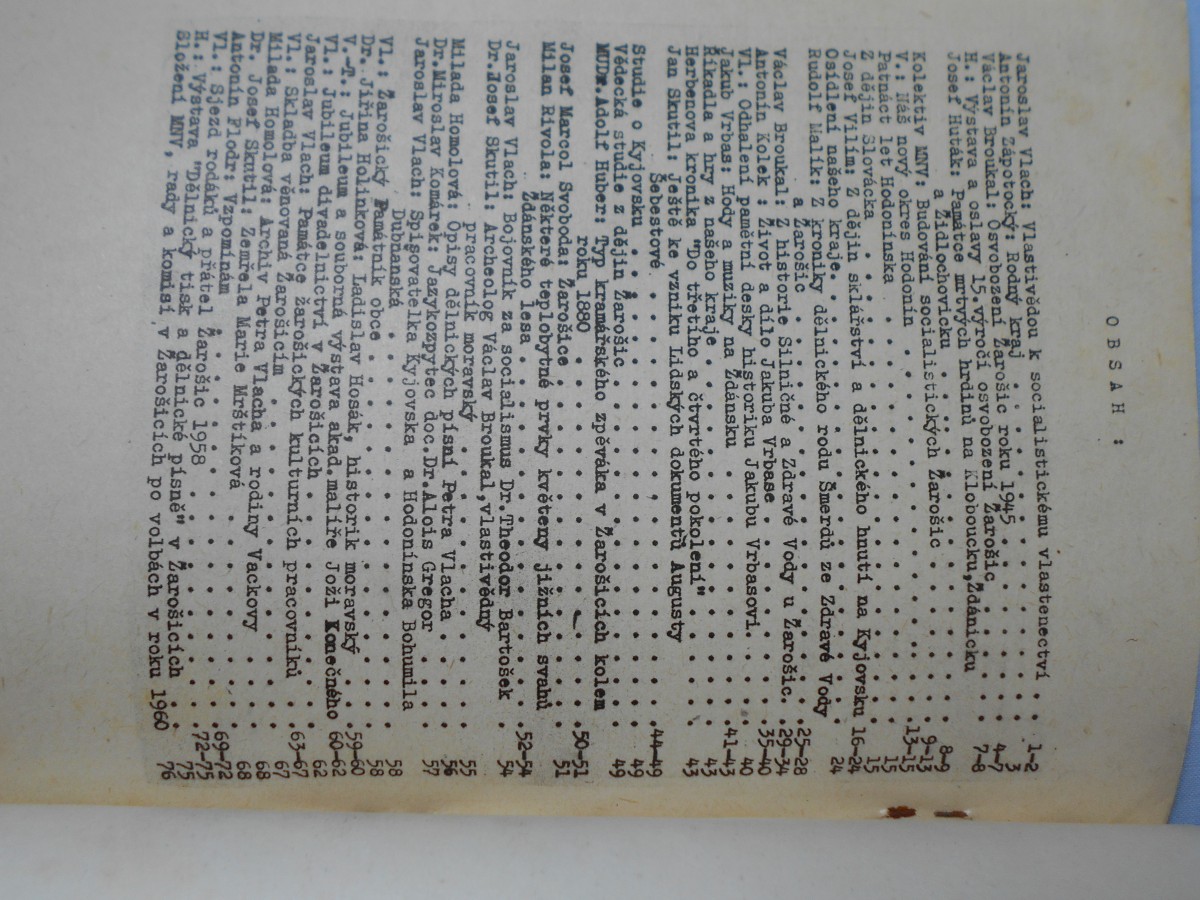 O B S A H :
Jaroslav Vlach: Vlastivědou k socialistickému vlastenectví . . 1-2
Antonín Zápotocký: Rodný kraj . . . . . . . . . . . . . . . . 3
Václav Broukal: Osvobození Žarošic roku 1945 . . . . . . . . . 4-7
H.: Výstava a oslavy 15.výročí osvobození Žarošic . . . . . . 7-8
Josef Huták: Památce mrtvých hrdinů na Kloboucku,Ždánicku
a Židlochovicku . . . . . . . . . . . . . . . . . 8-9
Kolektiv MNV: Budování socialistických Žarošic . . . . . . . . 9-13
V.: Náš nový okres Hodonín . . . . . . . . . . . . . . . . . .13-15
Patnáct let Hodonínska . . . . . . . . . . . . . . . . . . . . 15
Z dějin Slovácka . . . . . . . . . . . . . . . . . . . . . . . 15
Josef Vilím: Z dějin sklářství a dělnického hnutí na Kyjovsku 16-24
Osídlení našeho kraje. . . . . . . . . . . . . . . . . . . . . 24
Rudolf Malík: Z kroniky dělnického rodu Šmerdů ze Zdravé Vody
a Žarošic . . . . . . . . . . . . . . . . . . . 25-28
Václav Broukal: Z historie Silničné a Zdravé Vody u Žarošic. . 29-34
Antonín Kolek : Život a dílo Jakuba Vrbase . . . . . . . . . . 35-40
Vl.: Odhalení pamětní desky historiku Jakubu Vrbasovi. . . . . 40
Jakub Vrbas: Hody a muziky na Ždánsku . . . . . . . . . . . . .41-43
Říkadla a hry z našeho kraje . . . . . . . . . . . . . . . . . 43
Herbenova kronika "Do třetího a čtvrtého pokolení" . . . . . . 43
Jan Skutil: Ještě ke vzniku Lidských dokumentů Augusty
Šebestové . . . . . . . . . . . . . . . . . . . .44-49
Studie o Kyjovsku . . . . . . . . . . . . . . . . . . . . . . 49
Vědecká studie z dějin Žarošic . . . . . . . . . . . . . . . . 49
MUDr.Adolf Huber: Typ kramářského zpěváka v Žarošicích kolem
roku 1880 . . . . . . . . . . . . . . . . . .50-51
Josef Marcol Svoboda: Žarošice . . . . . . . . . . . . . . . . 51
Milan Rivola: Některé teplobytné prvky květeny jižních svahů
Ždánského lesa . . . . . . . . . . . . . . . . .52-54
Jaroslav Vlach: Bojovník za socialismus Dr.Theodor Bartošek . 54
Dr.Josef Skutil: Archeolog Václav Broukal,vlastivědný
pracovník moravský . . . . . . . . . . . . . . 55
Milada Homolová: Opisy dělnických písní Petra Vlacha . . . . . 56
Dr.Miroslav Komárek: Jazykozpytec doc.Dr.Alois Gregor . . . . 57
Jaroslav Vlach: Spisovatelka Kyjovska a Hodonínska Bohumila
Dubňanská . . . . . . . . . . . . . . . . . . . 58
Vl.: Žarošický Památník obce . . . . . . . . . . . . . . . . . 58
Dr. Jiřina Holinková: Ladislav Hosák, historik moravský . . . .59-60
V.-T.: Jubileum a souborná výstava akad.malíře Joži Konečného 60-62
Vl.: Jubileum divadelnictví v Žarošicích . . . . . . . . . . . 62
Jaroslav Vlach: Památce žarošických kulturních pracovníků . . .63-67
Vl.: Skladba věnovaná Žarošicím . . . . . . . . . . . . . . . . 67
Milada Homolová: Archiv Petra Vlacha a rodiny Vackovy . . . . . 68
Dr. Josef Skutil: Zemřela Marie Mrštíková . . . . . . . . . . . 68
Antonín Flodr: Vzpomínám . . . . . . . . . . . . . . . . . . . .69-72
Vl.: Sjezd rodáků a přátel Žarošic 1958 . . . . . . . . . . . .72-75
H.: Výstava "Dělnický tisk a dělnické písně" v Žarošicích . . . 75
Složení MNV, rady a komisí v Žarošicích po volbách v roku 1960 76